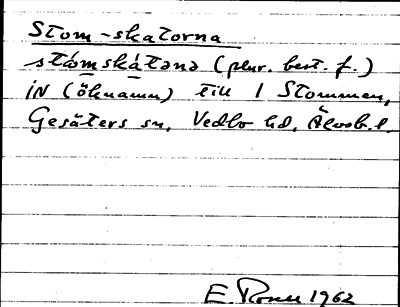 Stom-skatorna
stómskátənə (plur. best. f.)
iN (öknamn) till 1 Stommen,
Gesäters sn, Vedbo hd, Älvsb. l.
E. 1962